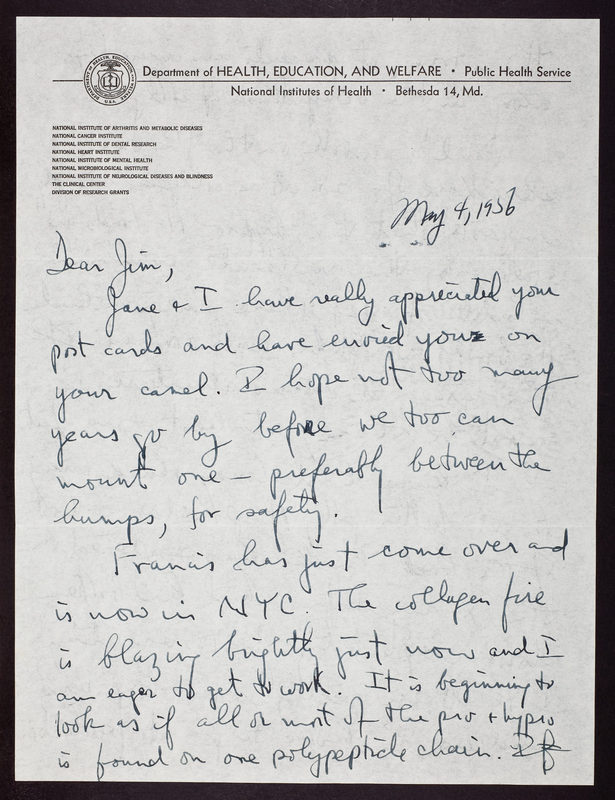 Department of HEALTH, EDUCATION, AND WELFARE • Public Health Service
National Institutes of Health • Bethesda 14, Md.
NATIONAL INSTITUTE OF ARTHRITIS AND METABOLIC DISEASES
NATIONAL CANCER INSTITUTE
NATIONAL INSTITUTE OF DENTAL RESEARCH
NATIONAL HEART INSTITUTE
NATIONAL INSTITUTE OF MENTAL HEALTH
NATIONAL MICROBIOLOGICAL INSTITUTE
NATIONAL INSTITUTE OF NEUROLOGICAL DISEASES AND BLINDNESS
THE CLINICAL CENTER
DIVISION OF RESEARCH GRANTS
May 4, 1956
Dear Jim,
Jane + I have really appreciated your
post cards and have envied you on
your camel. I hope not too many
years go by before we too can
mount one – preferably between the
humps, for safety.
Francis has just come over and
is now in NYC. The collagen fire
is blazing brightly just now and I
am eager to get to work. It is beginning to
look as if all or most of the pro + hypro
is found on one polypeptide chain.